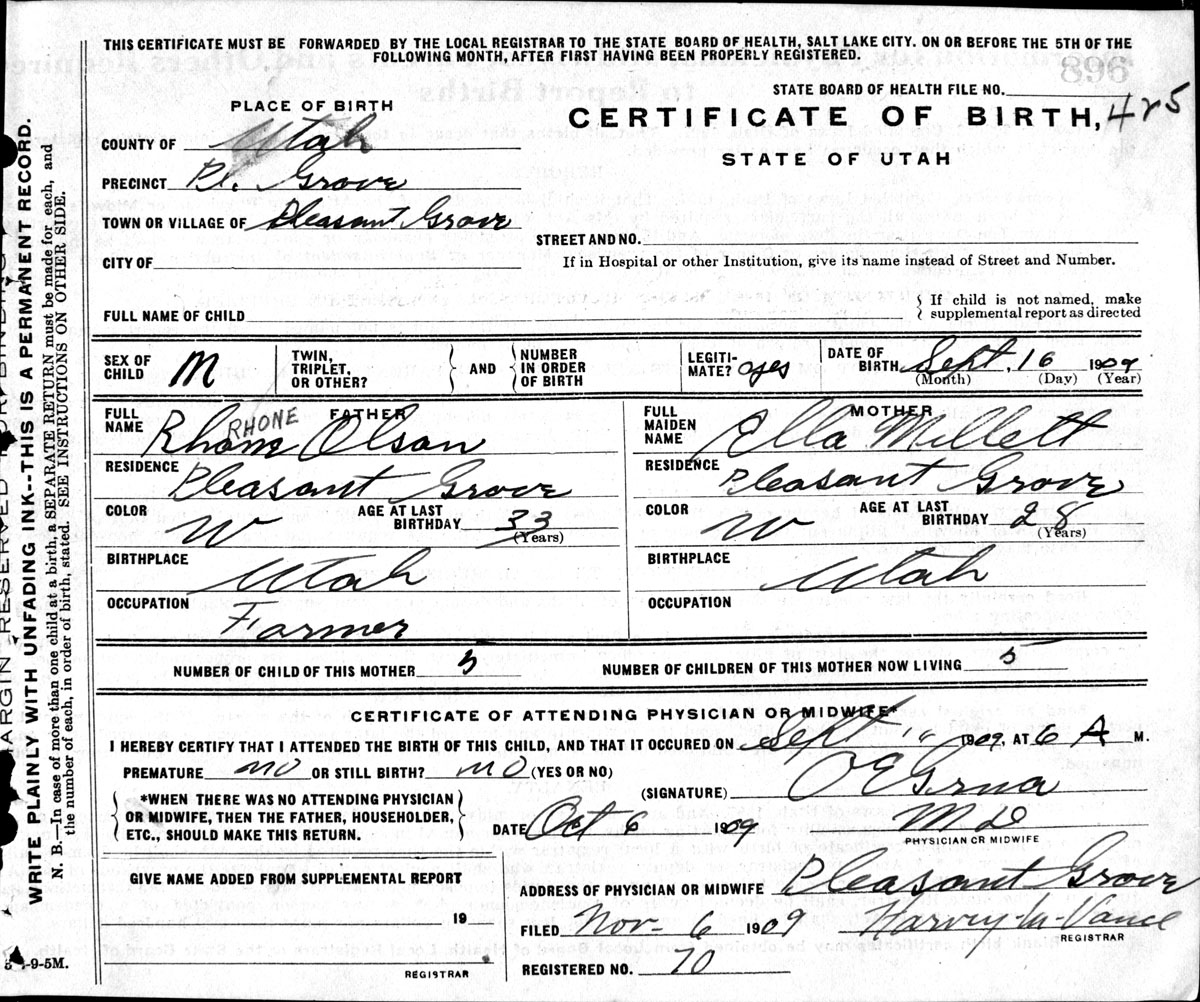 THIS CERTIFICATE MUST BE FORWARDED BY THE LOCAL REGISTRAR TO THE STATE BOARD OF HEALTH, SALT LAKE CITY. ON OR BEFORE THE 5TH OF THE
FOLLOWING MONTH, AFTER FIRST HAVING BEEN PROPERLY REGISTERED.
STATE BOARD OF HEALTH FILE NO.
PLACE OF BIRTH
CERTIFICATE OF BIRTH, 425
COUNTY OF Utah
STATE OF UTAH
PRECINCT Pl. Grove
TOWN OR VILLAGE OF Pleasant Grove
STREET AND NO.
CITY OF
If in Hospital or other Institution, give its name instead of Street and Number.
FULL NAME OF CHILD
If child is not named, make
supplemental report as directed
SEX OF CHILD M
TWIN, TRIPLET, OR OTHER?
AND
NUMBER IN ORDER OF BIRTH
LEGITIMATE? yes
DATE OF BIRTH Sept. 16 1909
(Month) (Day) (Year)
FATHER
FULL NAME Rhone RHONE Olson
RESIDENCE Pleasant Grove
COLOR W AGE AT LAST BIRTHDAY 33
(Years)
BIRTHPLACE Utah
OCCUPATION Farmer
MOTHER
FULL MAIDEN NAME Ella Millett
RESIDENCE Pleasant Grove
COLOR W AGE AT LAST BIRTHDAY 28
(Years)
BIRTHPLACE Utah
OCCUPATION
NUMBER OF CHILD OF THIS MOTHER 5 NUMBER OF CHILDREN OF THIS MOTHER NOW LIVING 5
CERTIFICATE OF ATTENDING PHYSICIAN OR MIDWIFE*
I HEREBY CERTIFY THAT I ATTENDED THE BIRTH OF THIS CHILD, AND THAT IT OCCURED ON Sept 16 1909, AT 6 A M.
PREMATURE no OR STILL BIRTH? no (YES OR NO)
(SIGNATURE) O E Grua
*WHEN THERE WAS NO ATTENDING PHYSICIAN
OR MIDWIFE, THEN THE FATHER, HOUSEHOLDER,
ETC., SHOULD MAKE THIS RETURN.
DATE Oct 6 1909 M D
PHYSICIAN OR MIDWIFE
GIVE NAME ADDED FROM SUPPLEMENTAL REPORT
ADDRESS OF PHYSICIAN OR MIDWIFE Pleasant Grove
19
FILED Nov. 6 1909 Harvy M Vance
REGISTRAR
REGISTERED NO. 70
REGISTRAR
-9-5M.
MARGIN RESERVED FOR BINDING
WRITE PLAINLY WITH UNFADING INK--THIS IS A PERMANENT RECORD.
N. B.—In case of more than one child at a birth, a SEPARATE RETURN must be made for each, and
the number of each, in order of birth, stated. SEE INSTRUCTIONS ON OTHER SIDE.